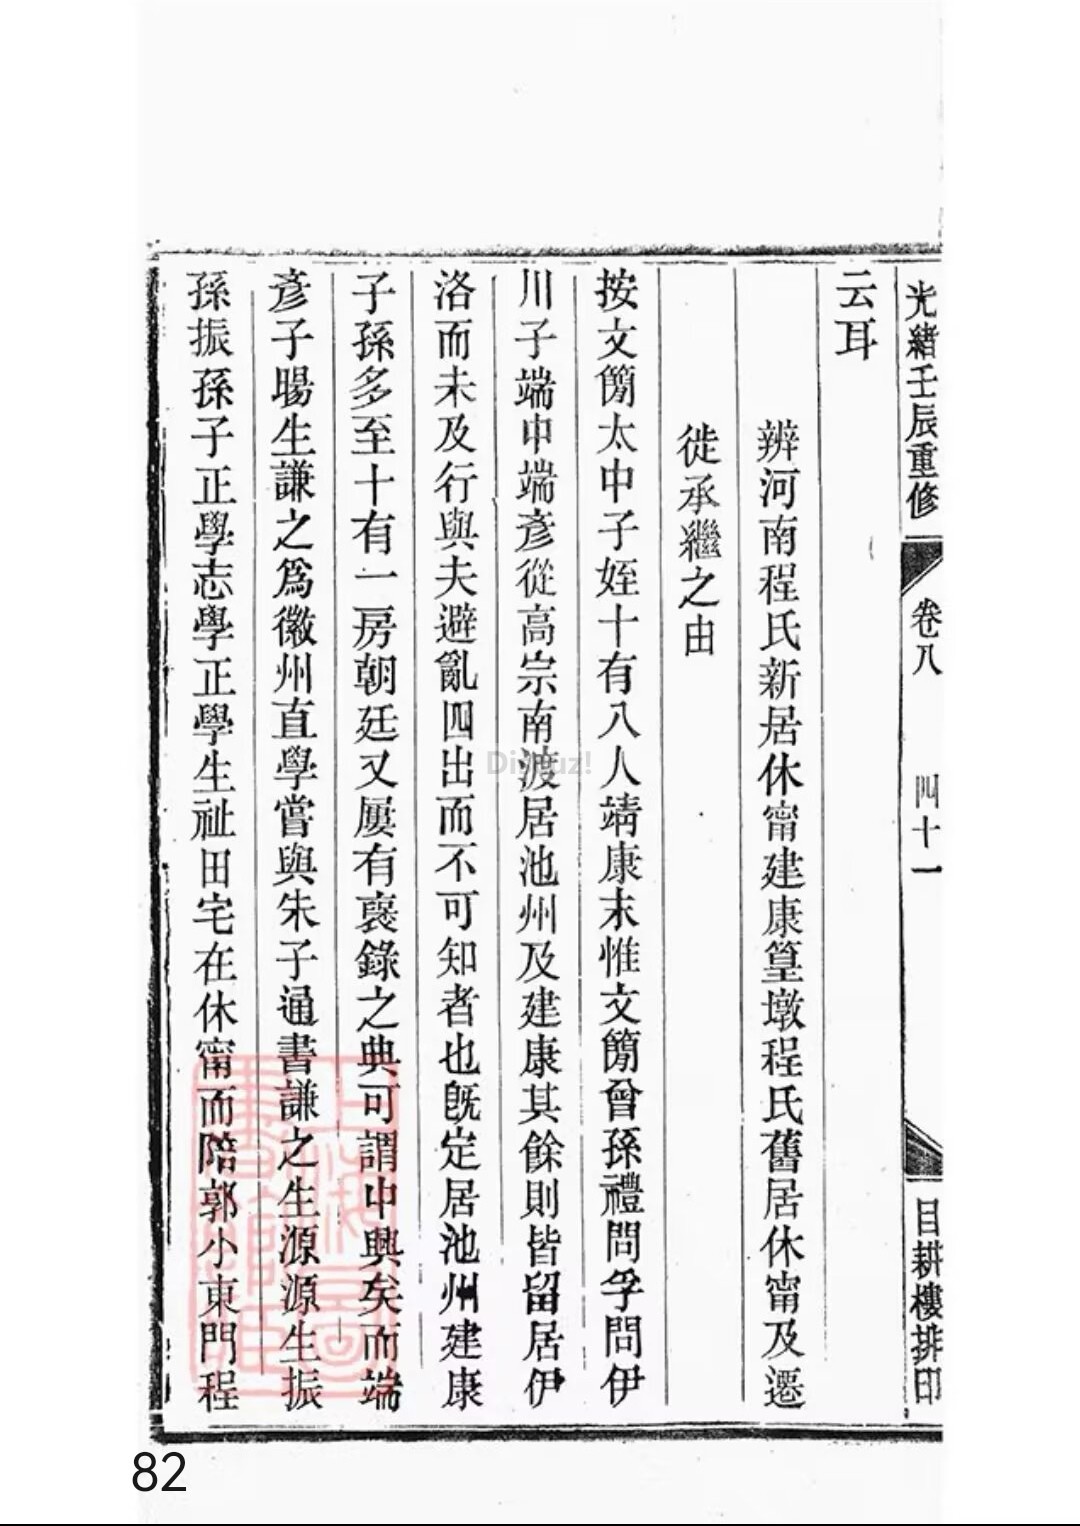 光緒壬辰重修
卷八
四十一
目耕樓排印
云耳
辨河南程氏新居休甯建康篁墩程氏舊居休甯及遷
徙承繼之由
按文簡太中子姪十有八人靖康末惟文簡曾孫禮問孚問伊
川子端中端彥從高宗南渡居池州及建康其餘則皆留居伊
洛而未及行與夫避亂四出而不可知者也旣定居池州建康
子孫多至十有一房朝廷又屢有襃錄之典可謂中興矣而端
彥子暘生謙之爲徽州直學嘗與朱子通書謙之生源源生振
孫振孫子正學志學正學生祉田宅在休甯而陪郭小東門程
上海圖書館藏
Discuz!
82